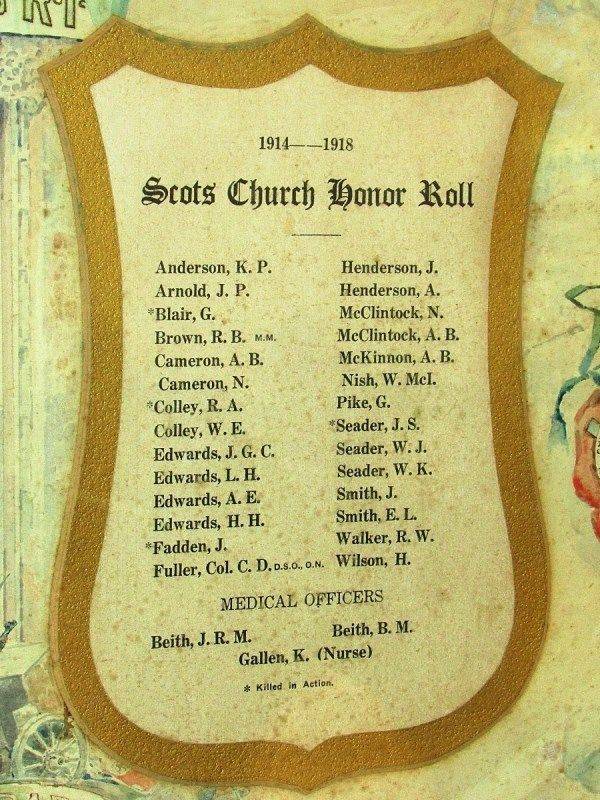 1914——1918
Scots Church Honor Roll
Anderson, K. P.
Arnold, J. P.
*Blair, G.
Brown, R. B. M.M.
Cameron, A. B.
Cameron, N.
*Colley, R. A.
Colley, W. E.
Edwards, J. G. C.
Edwards, L. H.
Edwards, A. E.
Edwards, H. H.
*Fadden, J.
Fuller, Col. C. D. D.S.O., O.N.
Henderson, J.
Henderson, A.
McClintock, N.
McClintock, A. B.
McKinnon, A. B.
Nish, W. McI.
Pike, G.
*Seader, J. S.
Seader, W. J.
Seader, W. K.
Smith, J.
Smith, E. L.
Walker, R. W.
Wilson, H.
MEDICAL OFFICERS
Beith, J. R. M.
Beith, B. M.
Gallen, K. (Nurse)
* Killed in Action.